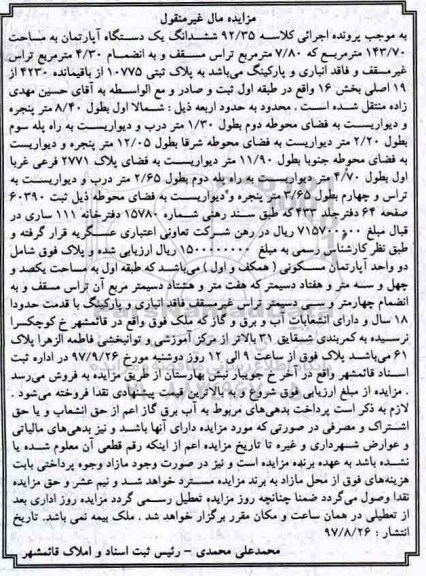 مزایده مال غیرمنقول
به موجب پرونده اجرائی کلاسه ۹۲/۳۵ ششدانگ یک دستگاه آپارتمان به مساحت
۱۴۳/۷۰ مترمربع که ۷/۸۰ مترمربع تراس مسقف و به انضمام ۴/۳۰ مترمربع تراس
غیرمسقف و فاقد انباری و پارکینگ می‌باشد به پلاک ثبتی ۱۰۷۷۵ از باقیمانده ۴۲۳۰ از
۱۹ اصلی بخش ۱۶ واقع در طبقه اول ثبت و صادر و مع الواسطه به آقای حسین مهدی
زاده منتقل شده است . محدود به حدود اربعه ذیل : شمالا اول بطول ۸/۴۰ متر پنجره
و دیواریست به فضای محوطه دوم بطول ۱/۳۰ متر درب و دیواریست به راه پله سوم
بطول ۲/۲۰ متر دیواریست به فضای محوطه شرقا بطول ۱۲/۰۵ متر پنجره و دیواریست
به فضای محوطه جنوبا بطول ۱۱/۹۰ متر دیواریست به فضای پلاک ۲۷۷۱ فرعی غربا
اول بطول ۴/۷۰ متر دیواریست به راه پله دوم بطول ۲/۶۵ متر درب و دیواریست به
تراس و چهارم بطول ۳/۶۵ متر پنجره و دیواریست به فضای محوطه ذیل ثبت ۶۰۳۹۰
صفحه ۶۴ دفترجلد ۴۳۳ که طبق سند رهنی شماره ۱۵۷۸۰ دفترخانه ۱۱۱ ساری در
قبال مبلغ ۷۱۵۷۰۰۰۰۰ ریال در رهن شرکت تعاونی اعتباری عسگریه قرار گرفته و
طبق نظر کارشناس رسمی به مبلغ ۱۵۰۰۰۰۰۰۰۰ ریال ارزیابی شده و پلاک فوق شامل
دو واحد آپارتمان مسکونی ( همکف و اول ) می‌باشد که طبقه اول به مساحت یکصد و
چهل و سه متر و هفتاد دسیمتر که هفت متر و هشتاد دسیمتر مربع آن تراس مسقف و به
انضمام چهارمتر و سی دسیمتر تراس غیرمسقف فاقد انباری و پارکینگ با قدمت حدودا
۱۸ سال و دارای انشعابات آب و برق و گاز که ملک فوق واقع در قائمشهر خ کوچکسرا
نرسیده به کمربندی شقایق ۳۱ بالاتر از مرکز آموزشی و توانبخشی فاطمه الزهرا پلاک
۶۱ می‌باشد پلاک فوق از ساعت ۹ الی ۱۲ روز دوشنبه مورخ ۹۷/۹/۲۶ در اداره ثبت
اسناد قائمشهر واقع در آخر خ جویبار نبش بهارستان از طریق مزایده به فروش می‌رسد
. مزایده از مبلغ ارزیابی فوق شروع و به بالاترین قیمت پیشنهادی نقدا فروخته می‌شود .
لازم به ذکر است پرداخت بدهی‌های مربوط به آب برق گاز اعم از حق انشعاب و یا حق
اشتراک و مصرفی در صورتی که مورد مزایده دارای آنها باشد و نیز بدهی‌های مالیاتی
و عوارض شهرداری و غیره تا تاریخ مزایده اعم از اینکه رقم قطعی آن معلوم شده یا
نشده باشد به عهده برنده مزایده است و نیز در صورت وجود مازاد وجوه پرداختی بابت
هزینه‌های فوق از محل مازاد به برنده مزایده مسترد خواهد شد و نیم عشر و حق مزایده
نقدا وصول می‌گردد ضمنا چنانچه روز مزایده تعطیل رسمی گردد مزایده روز اداری بعد
از تعطیلی در همان ساعت و مکان مقرر برگزار خواهد شد . ملک بیمه نمی باشد. تاریخ
انتشار : ۹۷/۸/۲۶
محمدعلی محمدی - رئیس ثبت اسناد و املاک قائمشهر